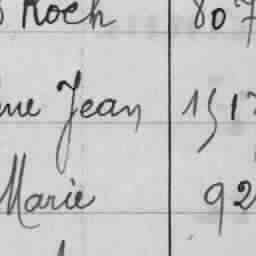 Roch 807
me Jean 1517
Marie 92